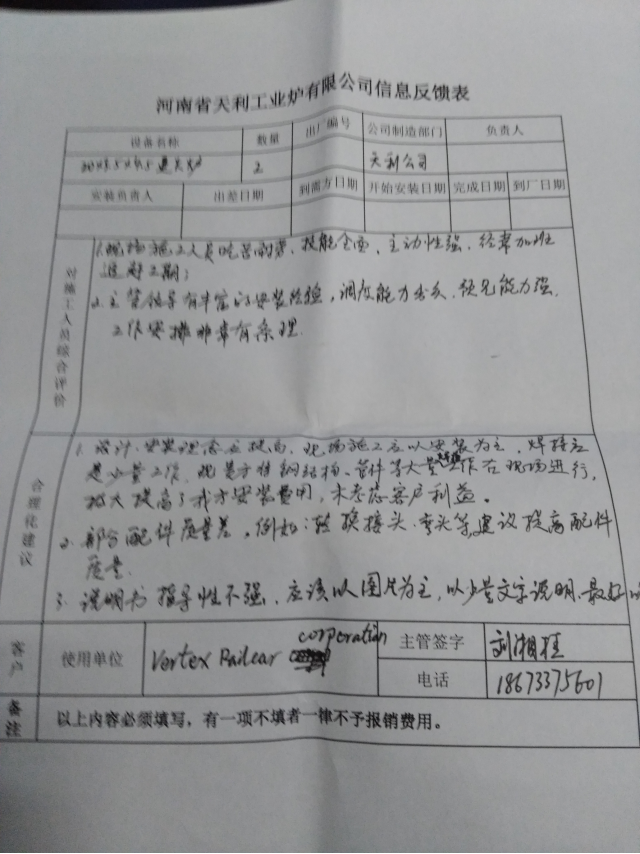 河南省天利工业炉有限公司信息反馈表
设备名称 数量 出厂编号 公司制造部门 负责人
2 天利公司
安装负责人 出差日期 到需方日期 开始安装日期 完成日期 到厂日期
对施工人员综合评价
1.现场施工人员吃苦耐劳、技能全面、主动性强、经常加班
追赶工期;
2.主管领导有丰富的安装经验,调度能力出众、预见能力强、
工作安排非常有条理.
合理化建议
1.设计、安装理念应提高,现场施工应以安装为主,焊接应
是少量工作,现是方柱钢结构、管件等大量工作在现场进行,
极大提高了我方安装费用,未考虑客户利益。
2.部分配件质量差,例如:转换接头、弯头等,建议提高配件
质量.
3.说明书指导性不强、应该以图片为主,以少量文字说明、最好
客户 使用单位 Vertex Railcar corporation 主管签字 刘湘桂
电话 18673375601
备注 以上内容必须填写,有一项不填者一律不予报销费用。